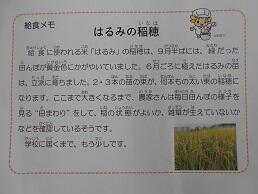 給食メモ
はるみの稲穂
給食に使われる米「はるみ」の稲穂は、9月半ばには、緑だった
田んぼが黄金色にかがやいていました。6月ごろに植えたはるみの苗
は、立派に育ちました。2・3本の苗の束が、何本もの太い束の稲穂に
なります。ここまで大きくなるまで、農家さんは毎日田んぼの様子を
見る“田まわり”をして、稲の状態がよいか、雑草が生えていないか
などを確認しているそうです。
学校に届くまで、もう少しです。